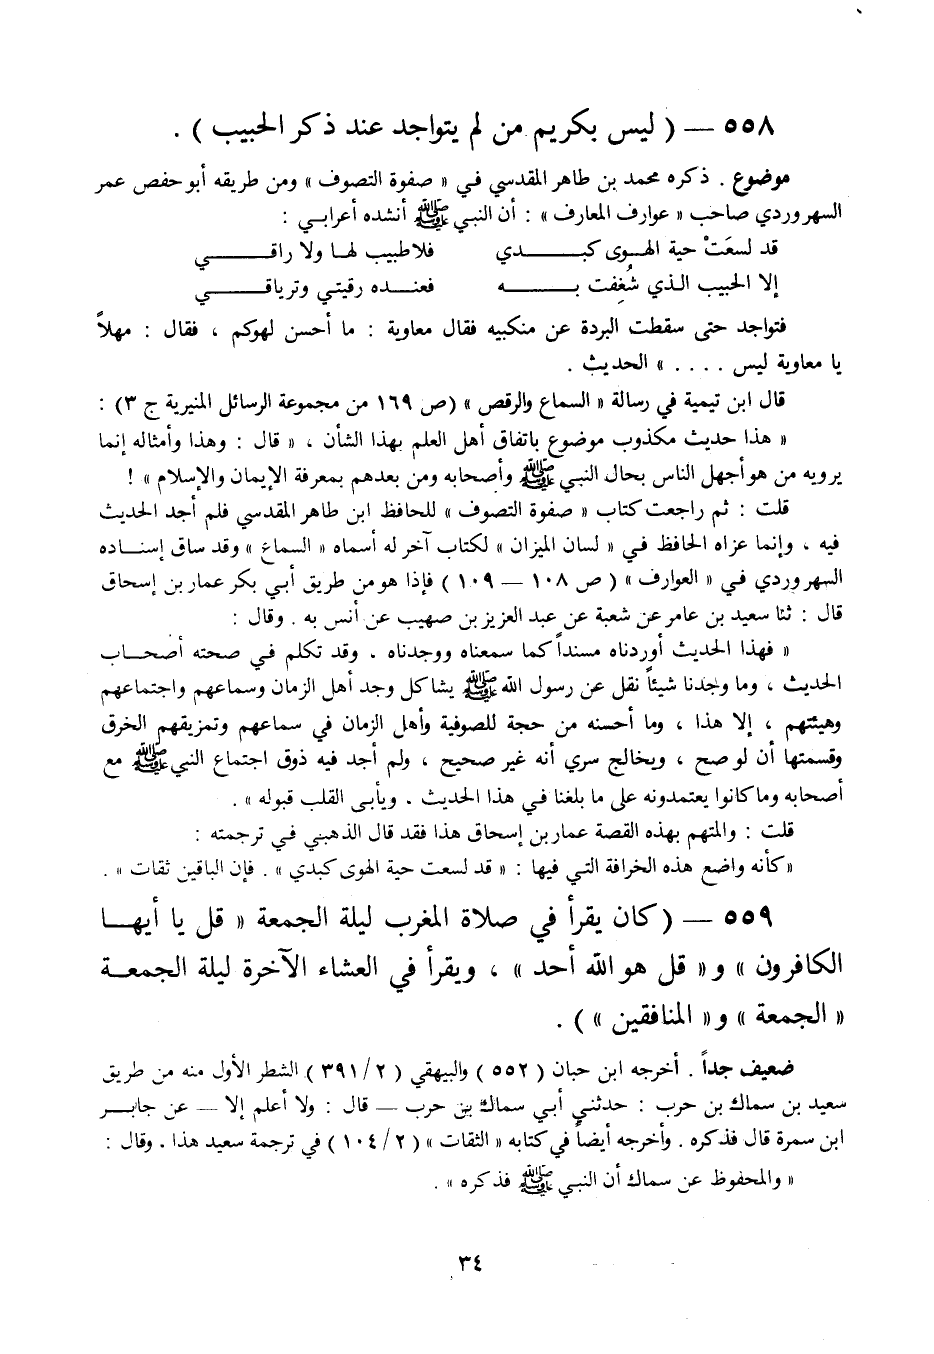 ٥٥٨ — ( ليس بكريم من لم يتواجد عند ذكر الحبيب ) .
موضوع . ذكره محمد بن طاهر المقدسي في « صفوة التصوف » ومن طريقه أبو حفص عمر
السهروردي صاحب « عوارف المعارف » : أن النبي ﷺ أنشده أعرابي :
قد لسعَتْ حية الهـوى كبـــــدي فلا طبيب لهـا ولا راقـــــي
إلا الحبيب الـذي شُغِفت بـــــه فعنـــده رقيتي وترياقـــــي
فتواجد حتى سقطت البردة عن منكبيه فقال معاوية : ما أحسن لهوكم ، فقال : مهلاً
يا معاوية ليس . . . . » الحديث .
قال ابن تيمية في رسالة « السماع والرقص » (ص ١٦٩ من مجموعة الرسائل المنيرية ج ٣) :
« هذا حديث مكذوب موضوع باتفاق أهل العلم بهذا الشأن ، « قال : وهذا وأمثاله إنما
يرويه من هو أجهل الناس بحال النبي ﷺ وأصحابه ومن بعدهم بمعرفة الإيمان والإسلام » !
قلت : ثم راجعت كتاب « صفوة التصوف » للحافظ ابن طاهر المقدسي فلم أجد الحديث
فيه ، وإنما عزاه الحافظ في « لسان الميزان » لكتاب آخر له أسماه « السماع » وقد ساق إسنـاده
السهروردي في « العوارف » ( ص ١٠٨ — ١٠٩ ) فإذا هو من طريق أبي بكر عمار بن إسحاق
قال : ثنا سعيد بن عامر عن شعبة عن عبد العزيز بن صهيب عن أنس به . وقال :
« فهذا الحديث أوردناه مسنداً كما سمعناه ووجدناه . وقد تكلم في صحته أصحـاب
الحديث ، وما وجدنا شيئاً نقل عن رسول الله ﷺ يشاكل وجد أهل الزمان وسماعهم واجتماعهم
وهيئتهم ، إلا هذا ، وما أحسنه من حجة للصوفية وأهل الزمان في سماعهم وتمزيقهم الخرق
وقسمتها أن لو صح ، ويخالج سري أنه غير صحيح ، ولم أجد فيه ذوق اجتماع النبي ﷺ مع
أصحابه وما كانوا يعتمدونه على ما بلغنا في هذا الحديث . ويأبى القلب قبوله » .
قلت : والمتهم بهذه القصة عمار بن إسحاق هذا فقد قال الذهبي في ترجمته :
«كأنه واضع هذه الخرافة التي فيها : « قد لسعت حية الهوى كبدي » . فإن الباقين ثقات » .
٥٥٩ — (كان يقرأ في صلاة المغرب ليلة الجمعة « قل يا أيهـا
الكافرون » و« قل هو الله أحد » ، ويقرأ في العشاء الآخرة ليلة الجمعـة
« الجمعة » و« المنافقين » ) .
ضعيف جداً . أخرجه ابن حبان ( ٥٥٢ ) والبيهقي ( ٢ / ٣٩١ ) الشطر الأول منه من طريق
سعيد بن سماك بن حرب : حدثني أبي سماك بن حرب — قال : ولا أعلم إلا — عن جابـر
ابن سمرة قال فذكره . وأخرجه أيضاً في كتابه « الثقات » ( ٢ / ١٠٤ ) في ترجمة سعيد هذا . وقال :
« والمحفوظ عن سماك أن النبي ﷺ فذكره » .
٣٤